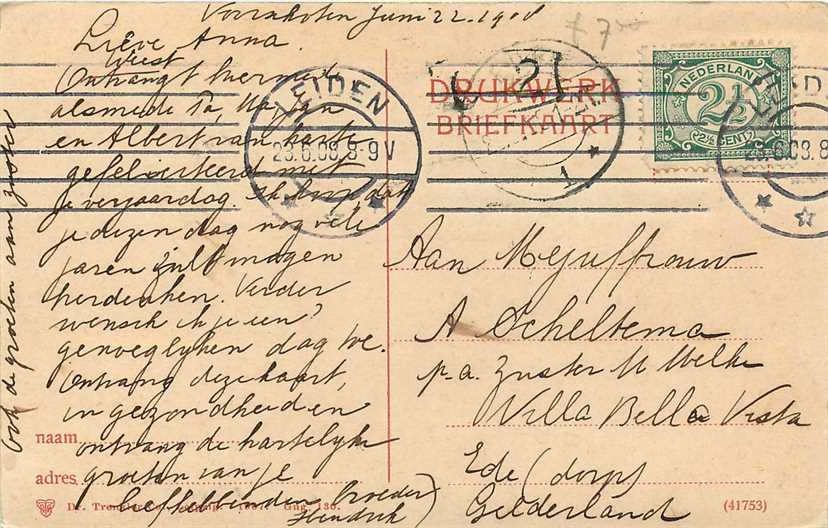 Voorschoten Juni 22. 1908
Lieve Anna.
Weest
Ontvangt hiermede
alsmede Pa,
en Albert van harte
gefeliciteerd met
je verjaardag. Ik hoop, dat
je dezen dag nog vele
jaren zult mogen
herdenken. Verder
wensch ik je een
genoeglyken dag toe.
Ontvang deze kaart,
in gezondheid en
ontvang de hartelyke
groeten van je
liefhebbenden broeder
Hendrik
Ook de groeten aan zuster
naam
adres
Dr. Trenkler
(41753)
DRUKWERK
BRIEFKAART
NEDERLAND
2½
2½ CENT
LEIDEN
23.6.08.8-9V
2
1
Aan Mejuffrouw
A Scheltema
p.a. Zuster M Welke
Villa Bella Vista
Ede (dorp)
Gelderland